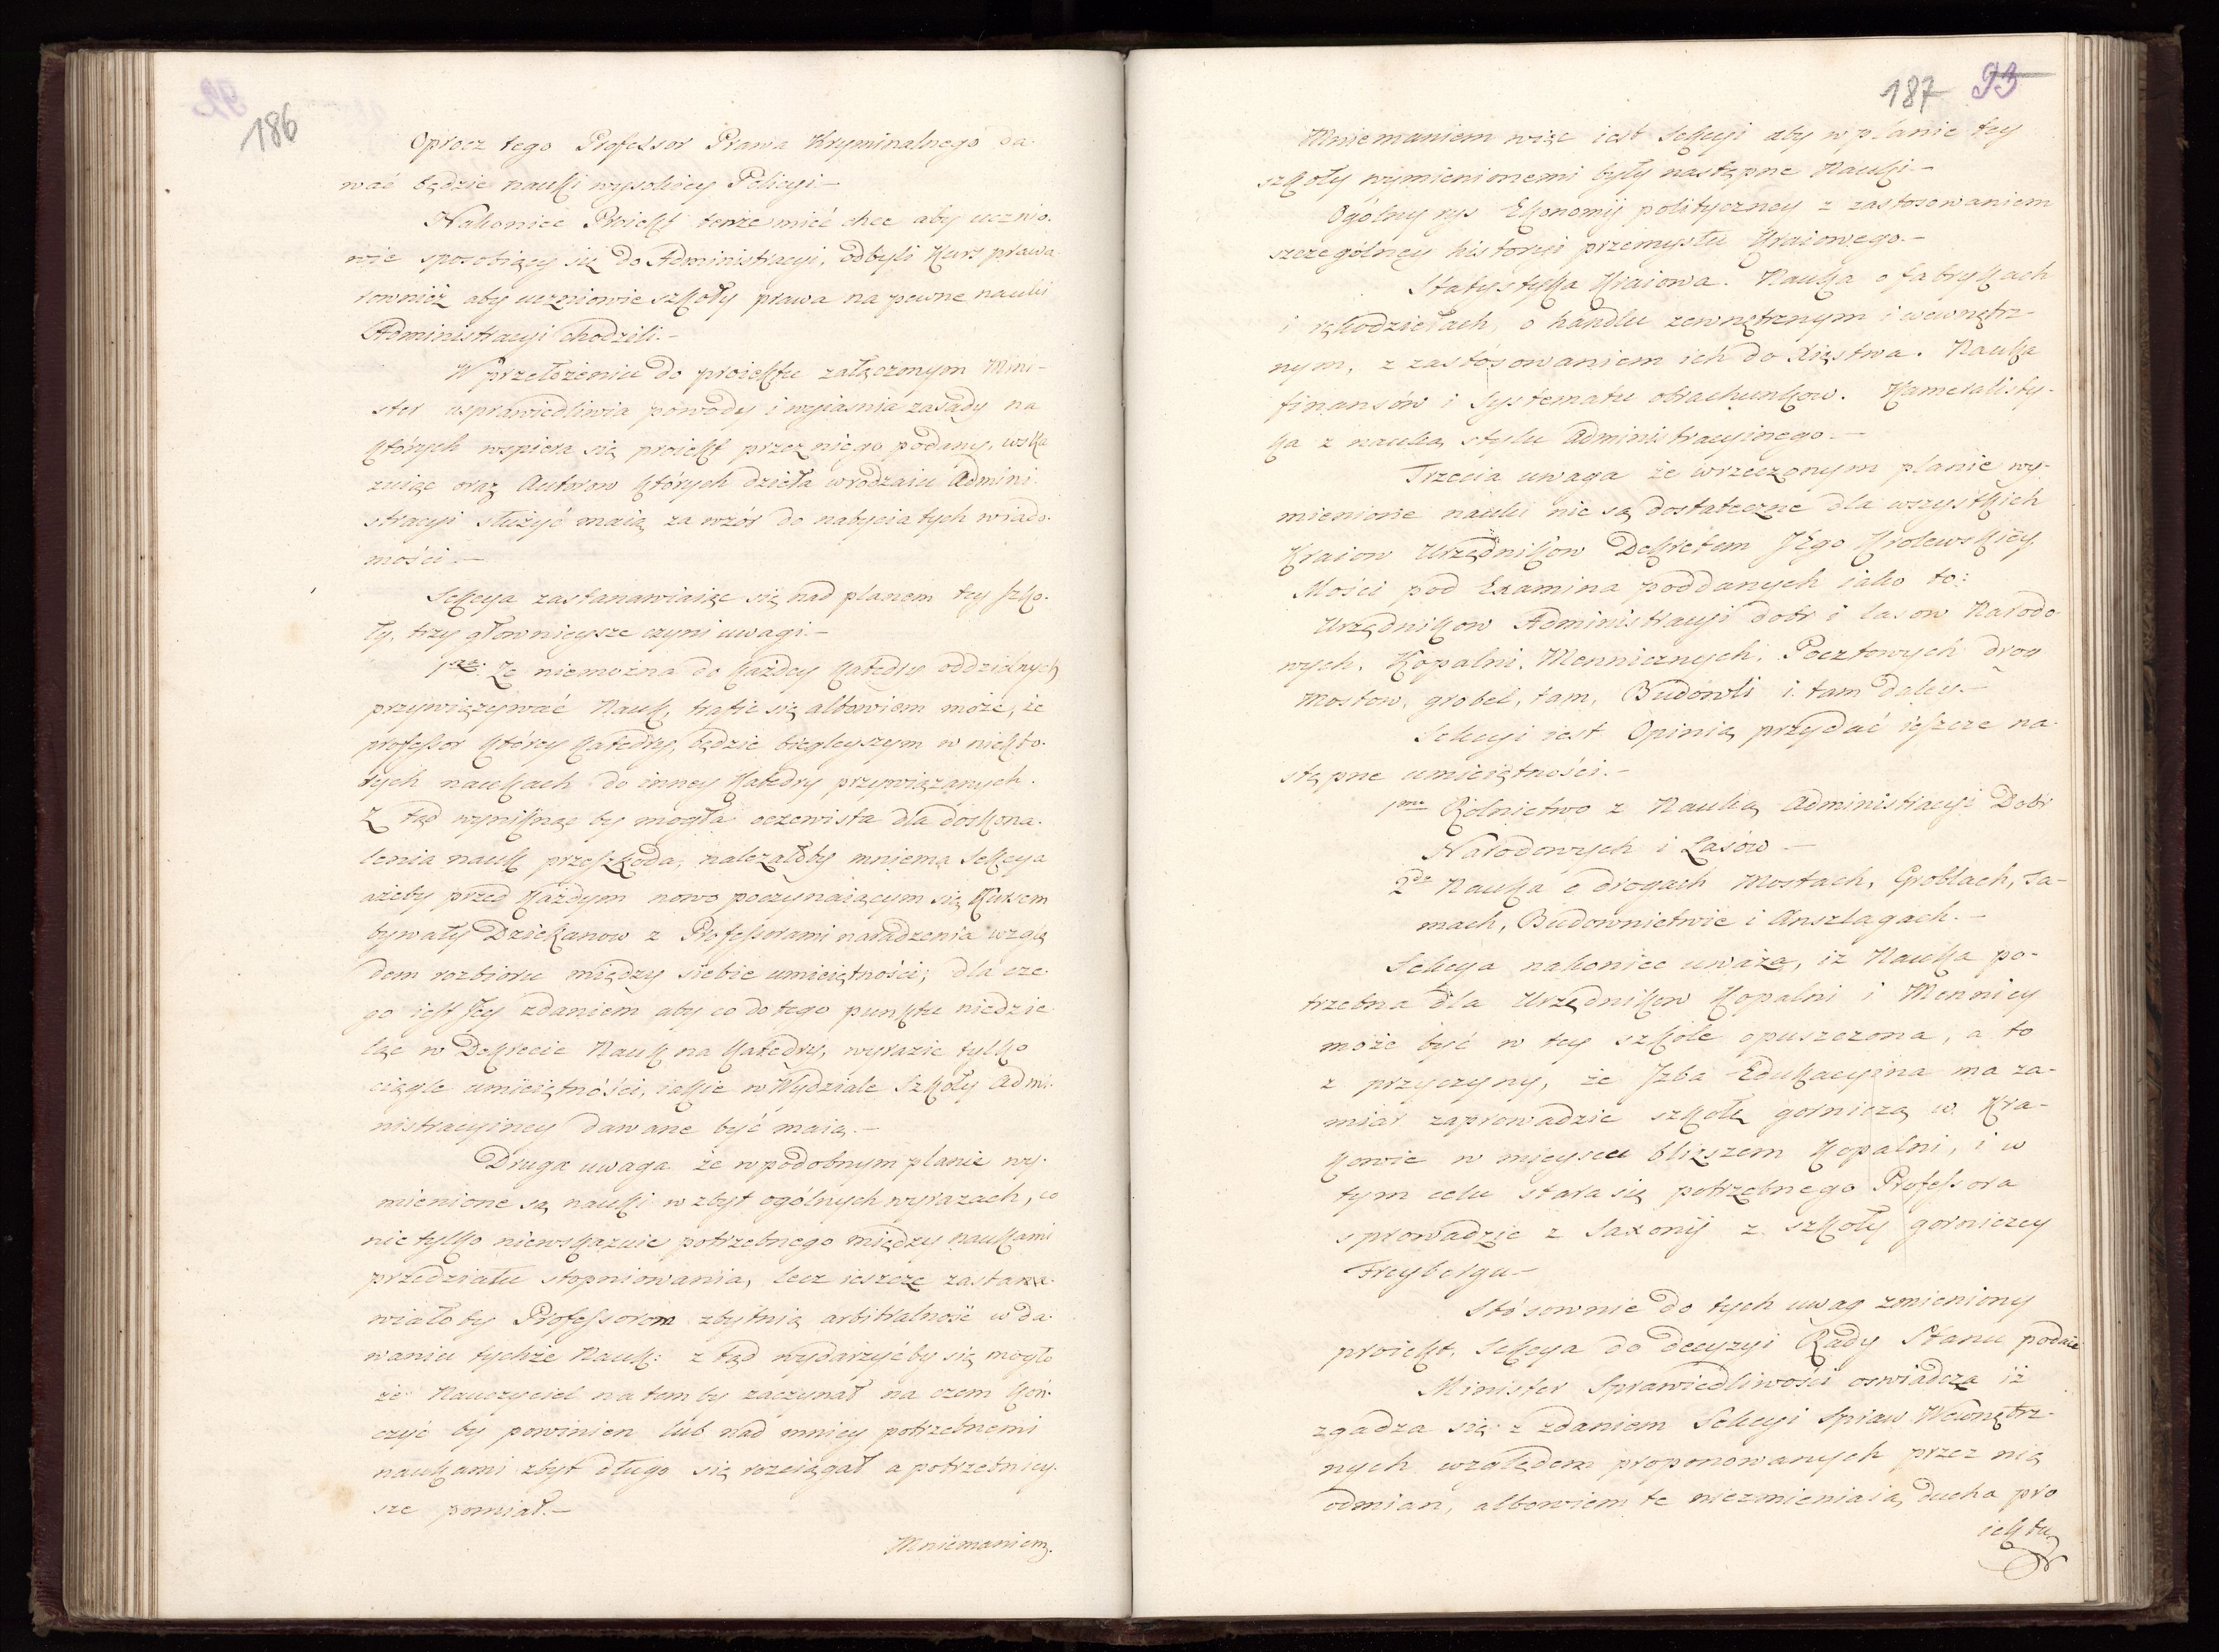 186
Oprocz tego Professor Prawa Kryminalnego da-
wać będzie nauki wysokiey Policyi.—
Nakoniec Proiekt tenże mieć chce aby ucznio-
wie sposobiący się do Administracyi, odbyli Kurs prawa
rownież aby uczniowie szkoły prawa na pewne nauki
Administracyi chodzili.—
W przełożeniu do proiektu załączonym Mini-
ster usprawiedliwia powody i wyiasnia zasady na
których wspiera się proiekt przez niego podany, wska
zuiąc oraz Autorow których dzieła w rodzaiu Admini-
stracyi służyć maią za wzór do nabycia tych wiado-
mości.—
Sekcya zastanawiaiąc się nad planem tey szko-
ły, trzy głownieysze czyni uwagi.—
1mo. Że niemożna do każdey katedry oddzielnych
przywiązywać Nauk, trafić się albowiem może, że
professor którey katedry, będzie biegleyszym w niektó-
rych naukach do inney Katedry przywiązanych.
Z tąd wyniknąć by mogła oczewista dla doskona-
lenia nauk przeszkoda, należałoby mniema Sekcya
ażeby przed każdym nowo poczynaiącym się Kursem
bywały Dziekanow z Professorami naradzenia wzglę
dem rozbioru między siebie umieiętności; dla cze-
go iest Jey zdaniem aby co do tego punktu niedzie
ląc w Dekrecie Nauk na katedry, wyrazić tylko
ciągle umieiętności, iakie w Wydziale Szkoły Admi-
nistracyiney dawane być maią.—
Druga uwaga że w podobnym planie wy-
mienione są nauki w zbyt ogólnych wyrazach, co
nie tylko niewskazuie potrzebnego między naukami
przedziału stopniowania, lecz ieszcze zastana-
wiałoby Professorom zbytnią arbitralność w da-
waniu tychże Nauk: z tąd wydarzyćby się mogło
że Nauczyciel na tem by zaczynał na czem koń-
czyć by powinien lub nad mniey potrzebnemi
naukami zbyt długo się rozciągał a potrzebniey-
sze pomiał.—
Mniemaniem.
187 93
Mniemaniem więc iest Sekcyi aby w planie tey
szkoły wymienionemi były następne Nauki.—
Ogólny rys Ekonomij polityczney z zastosowaniem
szczególney historyi przemysłu Kraiowego.—
Statystyka Kraiowa. Nauka o fabrykach
i rękodziełach, o handlu zewnętrznym i wewnętrz-
nym, z zastósowaniem ich do Xięstwa. Nauka
finansów i Systematu obrachunkow. Kameralisty-
ka z nauką stylu Administracyinego.—
Trzecia uwaga że w rzeczonym planie wy-
mienione nauki nie są dostateczne dla wszystkich
Kraiow Urzędnikow Dekretem JEgo Krolewskiey
Mości pod Examina poddanych iako to:
Urzędnikow Administracyi dobr i lasow Narodo
wych, Kopalni, Menniczynych, Pocztowych drog
Mostow, grobel, tam, Budowli i. tam daley.—
Sekcyi iest Opinią przydać ieszcze na-
stępne umieiętności.—
1mo Rolnictwo z Nauką Administracyi Dobr
Narodowych i Lasów.—
2do Nauka o drogach Mostach, Groblach, Ta-
mach, Budownictwie i Anszlagach.—
Sekcya nakoniec uważa, iż Nauka po-
trzebna dla Urzędnikow Kopalni i Mennicy
może być w tey szkole opuszczona, a to
z przyczyny, że Jzba Edukacyina ma za-
miar zaprowadzić szkołę gorniczą w Kra-
kowie w mieyscu bliższem Kopalni, i w
tym celu stara się potrzebnego Professora
sprowadzić z Saxonij z szkoły gorniczey
Freyberga—
Stósownie do tych uwag zmieniony
proiekt, Sekcya do decyzyi Rady Stanu podaie
Minister Sprawiedliwości oswiadcza iż
zgadza się z zdaniem Sekcyi Spraw Wewnętrz-
nych względem proponowanych przez nią
odmian, albowiem te niezmieniaią ducha pro
iektu